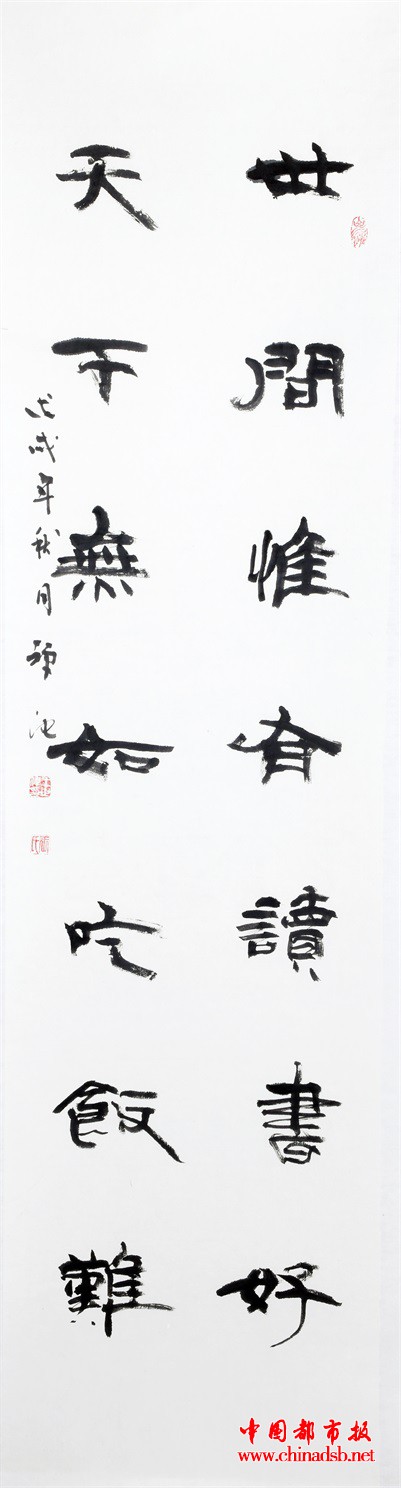 世間惟有讀書好
天下無如吃飯難
戊戌年秋月
中国都市报
www.chinadsb.net